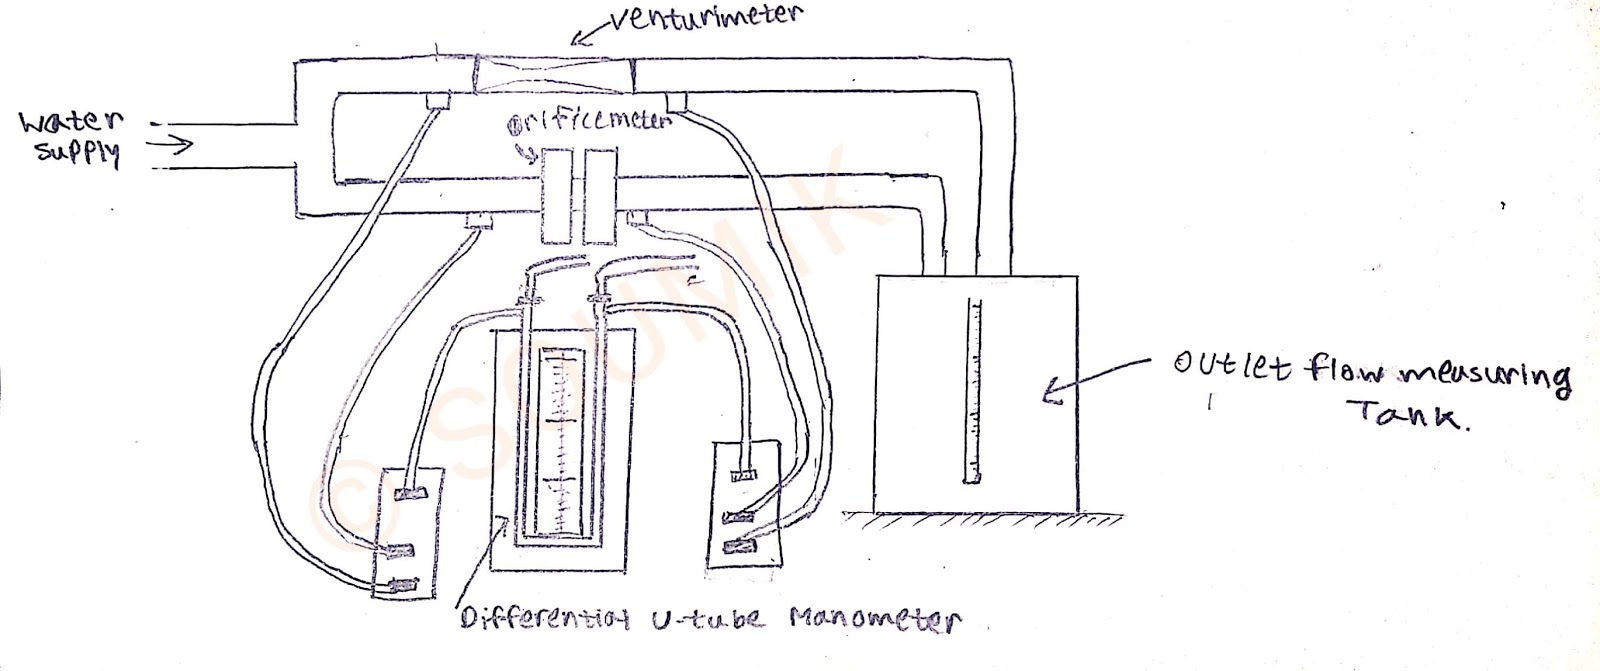 venturimeter
orificemeter
water
supply
outlet flow measuring
Tank.
Differential U-tube Manometer
© SOUMIK